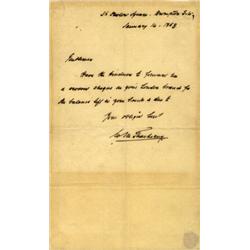 36 Onslow Square. Brompton
January 14. 1863
Gentlemen
Have the kindness to
a cheque on your London branch for
the balance left in your bank & due to
Your obliged Servt
W M Thackeray